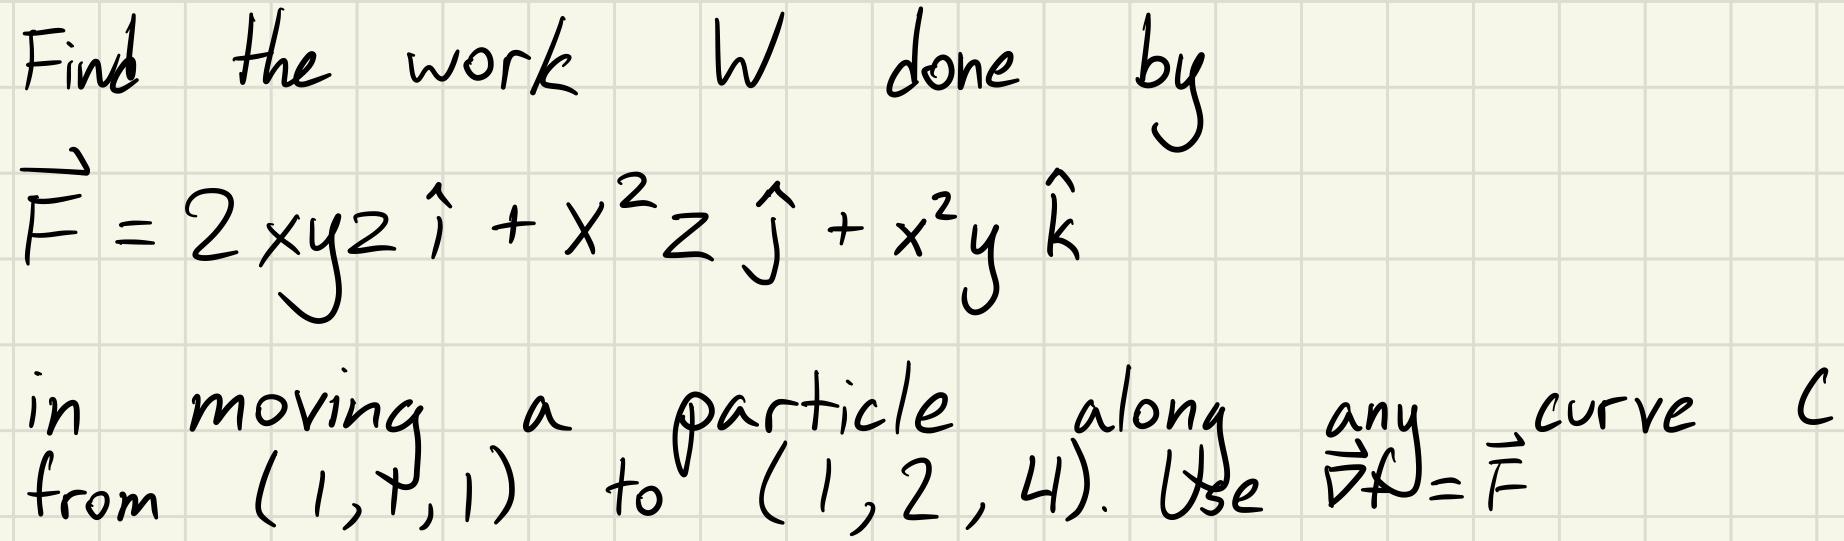 Find the work W done by
F⃗ = 2xyz î + x²z ĵ + x²y k̂
in moving a particle along any curve C
from (1,1,1) to (1,2,4). Use ∇⃗f = F⃗